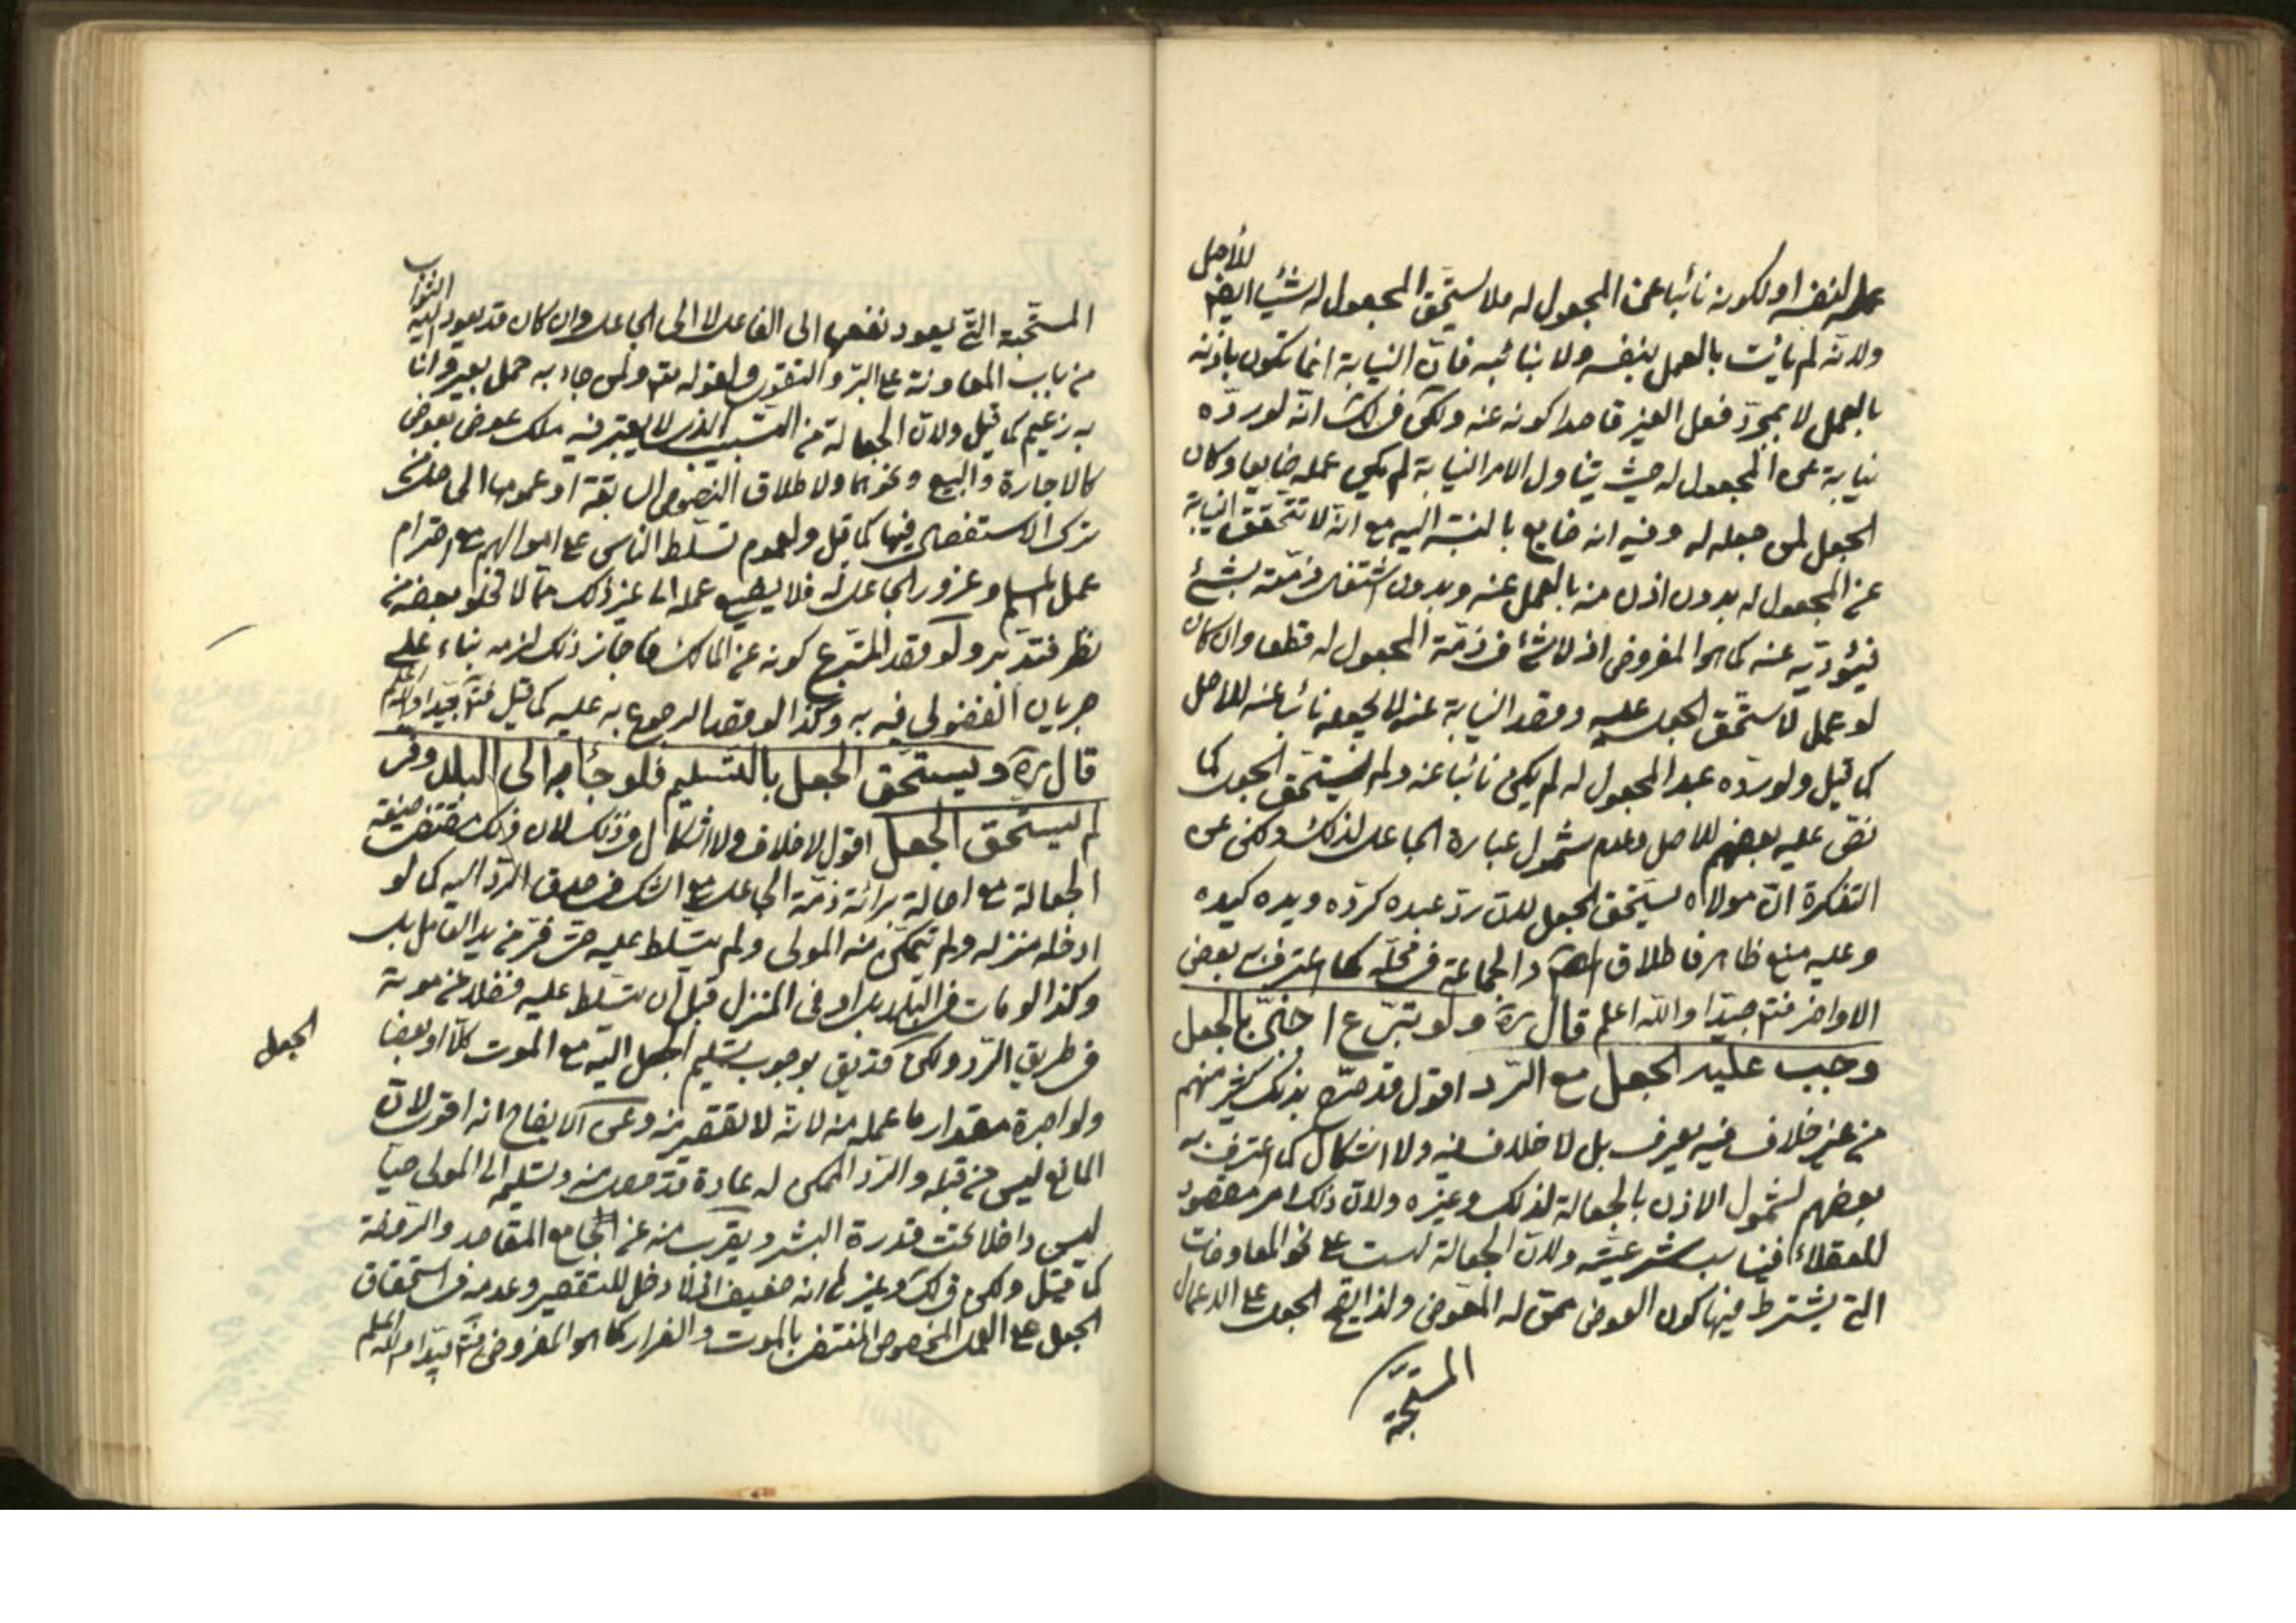 للأصل
عمله لنفسه او لكونه نائبا عن المجعول له فلا يستحق المجعول له شيئا ايضا
ولانه لم يأت بالعمل بنفسه ولا بنائبه فان النيابة انما تكون باذنه
بالعمل لا بمجرد فعل الغير قاصدا كونه عنه ولكن في انه لو رده
نيابة عن المجعول له حيث يتناول الامر النيابة لم يكن عمله ضايعا وكان
الجعل لمن جعله له وفيه انه ضايع بالنسبة اليه مع انه لا تتحقق النيابة
عن المجعول له بدون اذن منه بالعمل عنه وبدون اشتغال ذمته بشئ
فيؤديه عنه كما هو المفروض اذ لا شئ في ذمة المجعول له قطعا وان كان
لو عمل لاستحق الجعل عليه وقصد النيابة عنه لا يجعله نائبا عنه للاصل
كما قيل ولو رده عبد المجعول له لم يكن نائبا عنه ولم يستحق الجعل كما
نص عليه بعضهم للاصل وعدم شمول عبارة الجاعل لذلك ولكن عن
التذكرة ان مولاه يستحق الجعل لان رد عبده كرده ويده كيده
وعليه منع ظاهر فاطلاق والجماعة في محله كما اعترف به بعض
الاواخر فتم جيدا والله اعلم قال ره ولو تبرع اجنبي بالجعل
وجب عليه الجعل مع الرد اقول قد صرح بذلك كثير منهم
من غير خلاف فيه يعرف بل لا خلاف فيه ولا اشكال كما اعترف به
بعضهم لشمول الاذن بالجعالة لذلك وغيره ولان ذلك امر مقصود
للعقلاء فيناسب شرعيته ولان الجعالة ليست على نحو المعاوضات
التي يشترط فيها كون العوض ممن له المعوض ولذا يقع الجعل على الاعمال
المستحبة
الثواب
المستحبة التي يعود نفعها الى الفاعل لا الى الجاعل وان كان قد يعود اليه
من باب المعاونة على البر والتقوى ولقوله تعم ولمن جاء به حمل بعير وانا
به زعيم كما قيل ولان الجعالة من التسبيب الذي لا يعتبر فيه ملك عوض بعوض
كالاجارة والبيع ونحوهما ولاطلاق النصوص السابقة او عمومها الحاصل من
ترك الاستفصال فيها كما قيل ولعموم تسلط الناس على اموالهم مع احترام
عمل المسلم وغرور الجاعل له فلا يضيع عمله الى غير ذلك مما لا تخلو بعضه من
نظر فتدبر ولو قصد المتبرع كونه عن المالك فاجاز ذلك لزمه بناء على
جريان الفضولي فيه وكذا لو قصد الرجوع به عليه كما قيل فتم جيدا والله اعلم
قال ره ويستحق الجعل بالتسليم فلو جاء به الى البلد وفر
لم يستحق الجعل اقول لا خلاف ولا اشكال في ذلك لان ذلك مقتضى صيغة
الجعالة مع اصالة برائة ذمة الجاعل مع الشك في صدق الرد اليه كما لو
ادخله منزله ولم يتمكن منه المولى ولم يتسلط عليه حتى فر من يد العامل بل
وكذا لو مات في البلد بل او في المنزل قبل ان يتسلط عليه فضلا عن موته
في طريق الرد ولكن قد يق بوجوب تسليم الجعل اليه مع الموت كلا او بعضا
الجعل
ولو اجرة مقدار ما عمله منه لانه لا تقصير منه وعن الايضاح انه اقوى لان
المانع ليس من قبله والرد الممكن له عادة قد حصل منه وتسليمه الى المولى حيا
ليس داخلا تحت قدرة البشر ويقرب منه عن جامع المقاصد والروضة
كما قيل ولكن في لك وغيره انه ضعيف اذ لا دخل للتقصير وعدمه في استحقاق
الجعل على العمل المخصوص المنتفى بالموت والفرار كما هو المفروض فتم جيدا والله اعلم